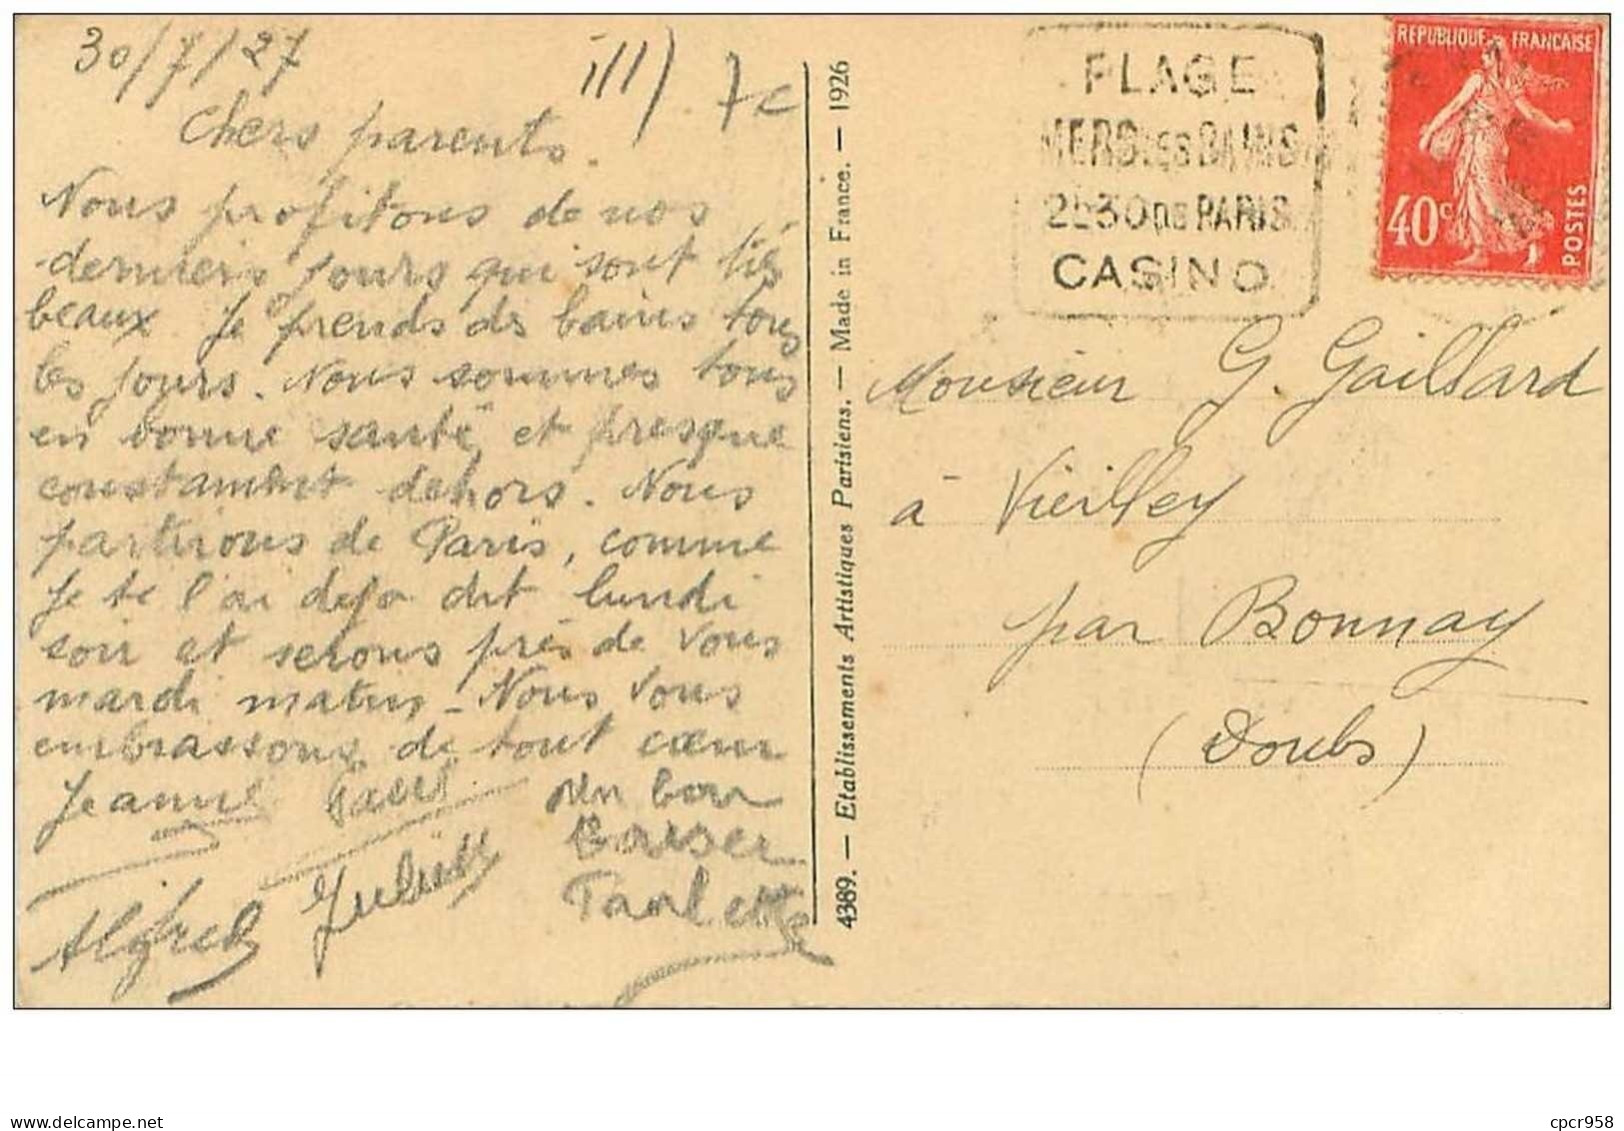 30/7/27
Chers parents.
Nous profitons de nos
derniers jours qui sont très
beaux Je prends des bains tous
les jours. Nous sommes tous
en bonne santé, et presque
constamment dehors. Nous
partirons de Paris, comme
je te l'ai déjà dit lundi
soir et serons près de vous
mardi matin - Nous vous
embrassons de tout cœur
Jeanne Paul un bon
baiser
Alfred Juliette Paulette
4389. — Etablissements Artistiques Parisiens. — Made in France. — 1926
PLAGE
MERS LES BAINS
2h30 DE PARIS
CASINO
REPUBLIQUE FRANCAISE
40c
POSTES
Monsieur G. Gaillard
à Vieilley
par Bonnay
(Doubs)
delcampe.net
cpcr958